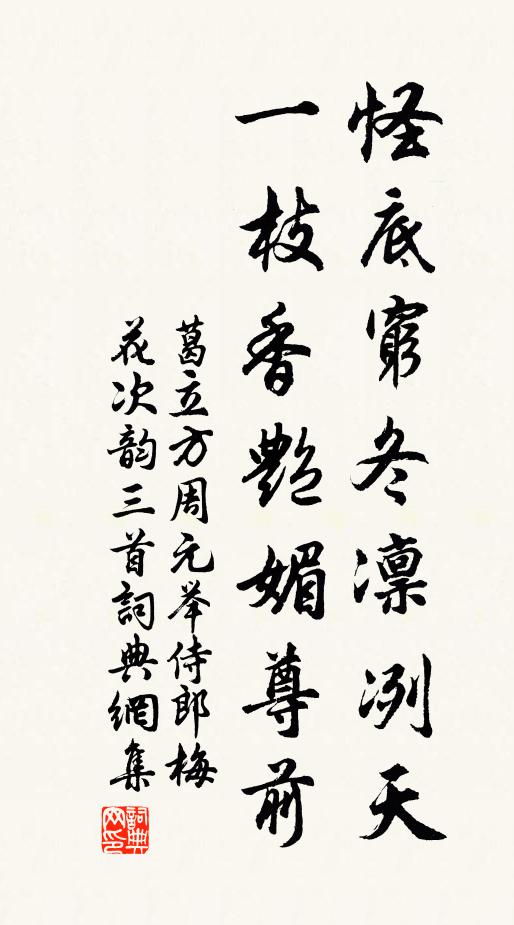 怪底窮冬凛冽天
一枝香艷媚尊前
葛立方周元举侍郎梅
花次韵三首詞典網集
詞典
网印